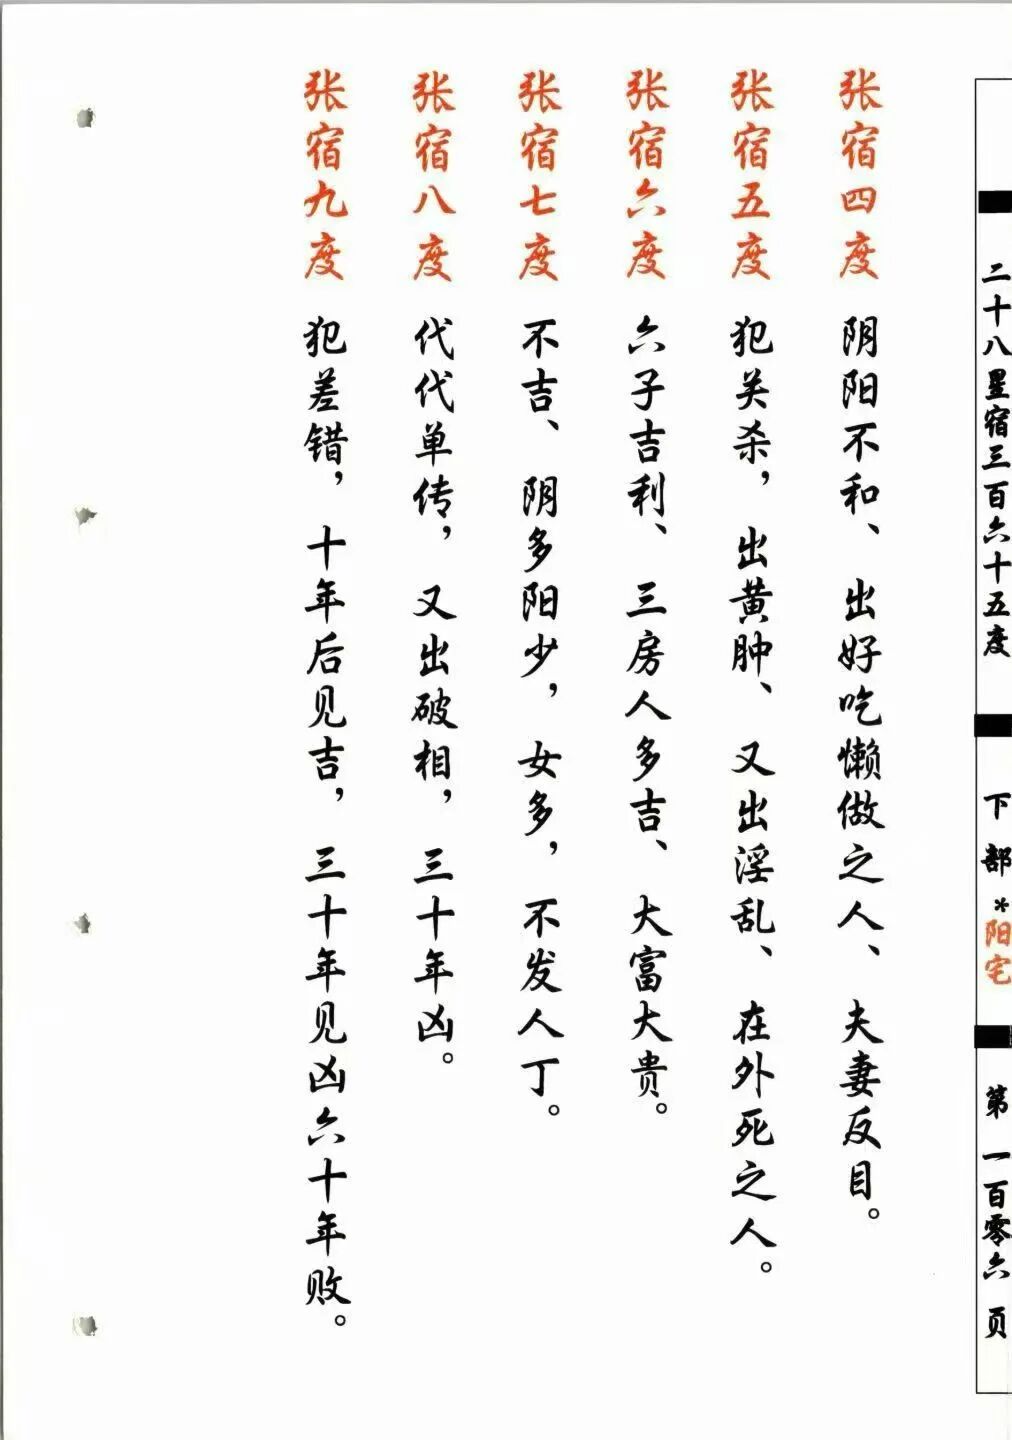 二十八星宿三百六十五度 下部*阳宅 第一百零六页
张宿四度 阴阳不和、出好吃懒做之人、夫妻反目。
张宿五度 犯关杀，出黄肿、又出淫乱、在外死之人。
张宿六度 六子吉利、三房人多吉、大富大贵。
张宿七度 不吉、阴多阳少，女多，不发人丁。
张宿八度 代代单传，又出破相，三十年凶。
张宿九度 犯差错，十年后见吉，三十年见凶六十年败。